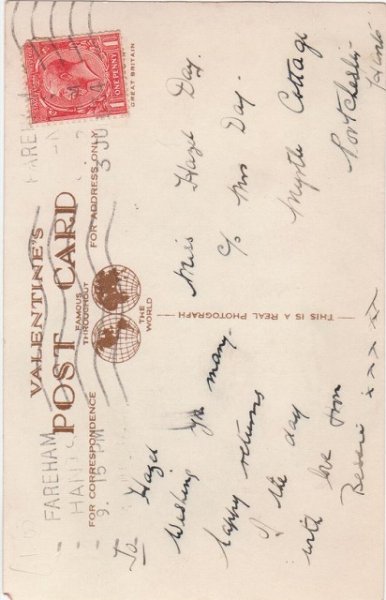 VALENTINE'S
POST CARD
FAMOUS THROUGHOUT
THE WORLD
FOR CORRESPONDENCE
FOR ADDRESS ONLY
GREAT BRITAIN
ONE PENNY
1
1
FAREHAM
HANTS
9. 15 PM
3 JU
FAREHAM
THIS IS A REAL PHOTOGRAPH
To
Hazel
Wishing you many
happy returns
of the day
with love from
Bessie x x x x x
Miss Hazel Day.
c/o Mrs Day.
Myrtle Cottage
Portchester
Hants